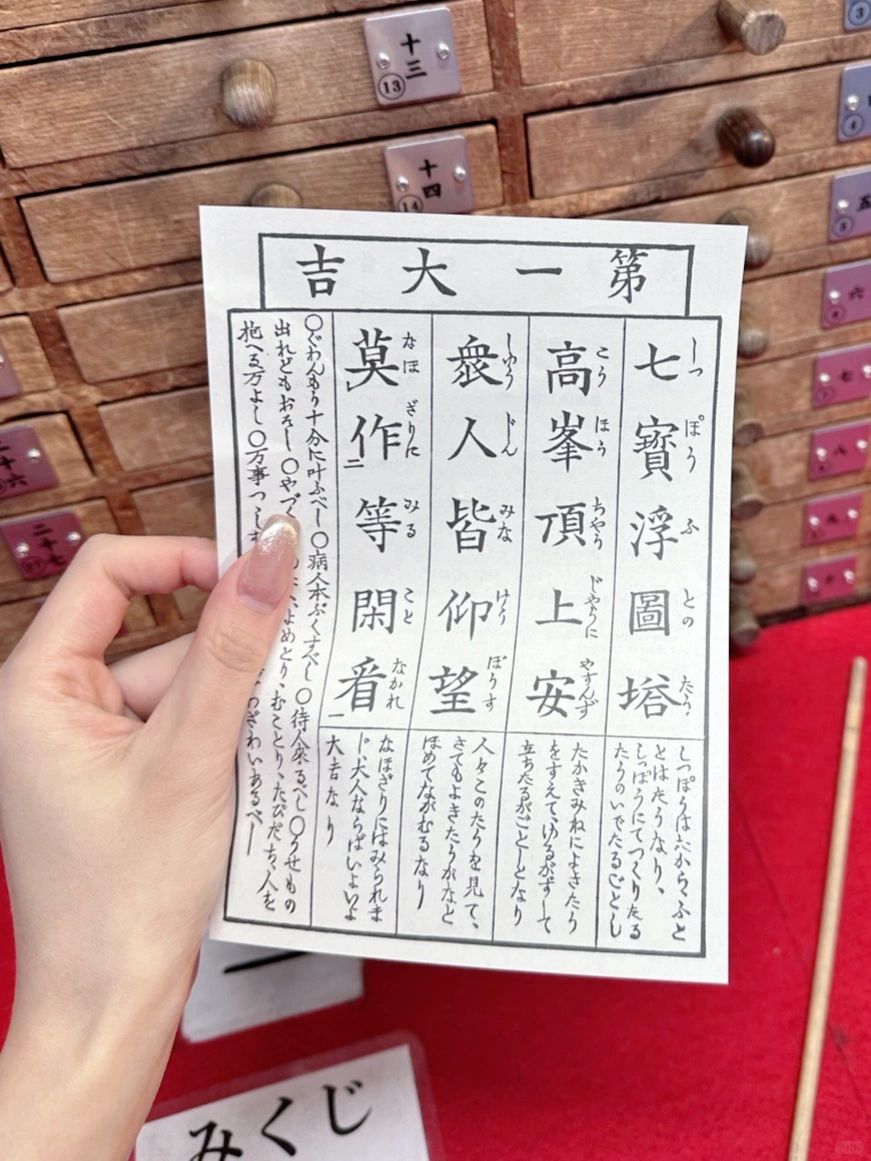 第一大吉
七寶浮圖塔
しつぽうふとのたう
高峯頂上安
こうほうちやうじやうにやすんず
衆人皆仰望
しゆうじんみなけうぼうす
莫作等閑看
なほざりにみることなかれ
しつぽうは六から、ふと
とはたうなり、
しつぽうにてつくりたる
たうのいでたるごとし
たかきみねによきたう
をすえて、ゆるがずして
立ちたるがごとしとなり
人々このたうを見て、
さてもよきたうかなと
ほめてながむるなり
なほざりにはみられま
じ、大人ならばいよいよ
大吉なり
〇ぐわんもう十分に叶ふべし〇病人本ぷくすべし〇待人來るべし〇うせもの
出れどもおそし〇やづく
よめとり、むことり、たびだち、人を
抱へる万よし〇万事つゝし
わざわいあるべし
十三
13
十四
14
五
六
七
八
二十六
二十七
みくじ